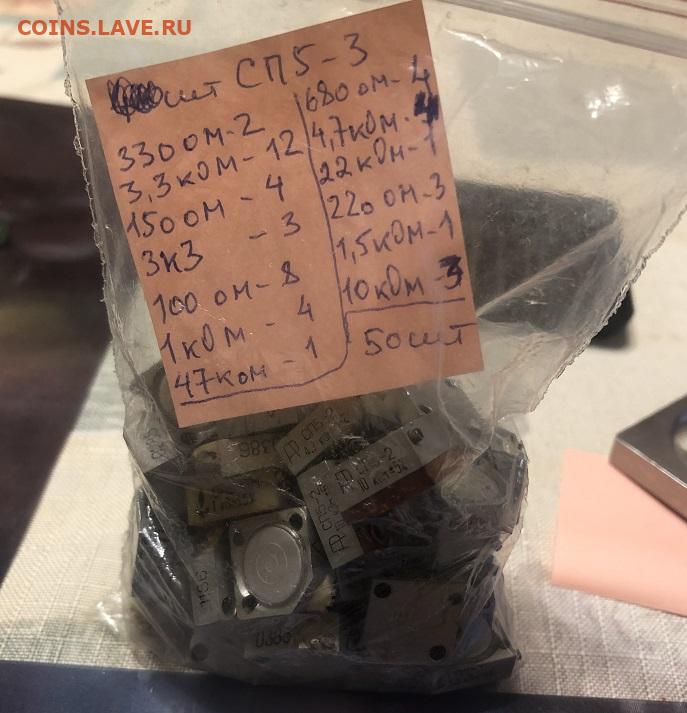 COINS.LAVE.RU
шт СП5-3
330 ом-2
3,3кОм-12
150 ом - 4
3к3 - 3
100 ом-8
1кОм - 4
47ком -1
680 ом-4
4,7кОм-4
22кОм-1
220 ом-3
1,5кОм-1
10кОм-3
50шт
СП5-2
СП5-2
СП5-2